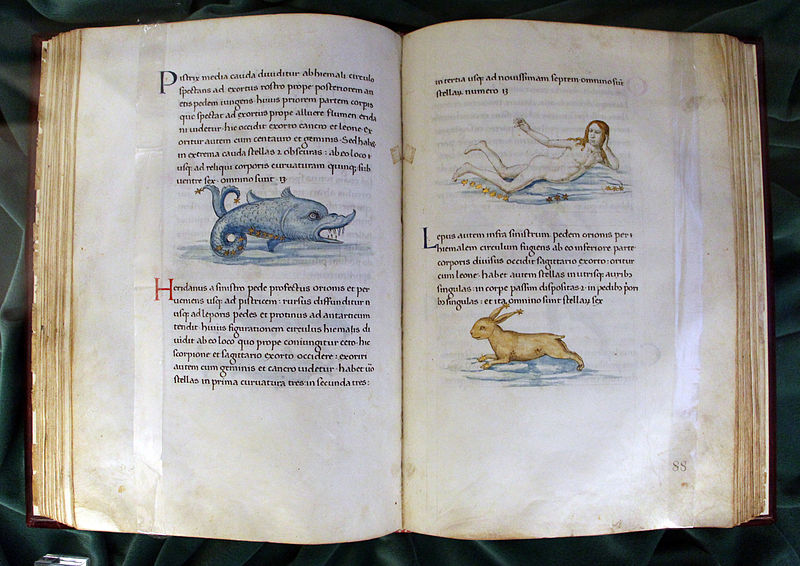 Pistrix media cauda diuiditur ab hiemali circulo
spectans ad exortus rostro prope posteriorem an
etis pedem iungens huius priorem partem corpis
que spectat ad exortus prope alluere flumen erida
ni uidetur hic occidit exorto cancro et leone ex
oritur autem cum centauro et geminis Sed habet
in extrema cauda stellas 2 obscuras: ab eo loco
usq; ad reliqui corporis curuaturam quinq; sub
uentre sex omnino sunt 13
Heridanus a sinistro pede profectus orionis et per
ueniens usq; ad pistricem: rursus diffunditur
usq; ad leporis pedes et protinus ad antarcticum
tendit huius figurationem circulus hiemalis di
uidit ab eo loco quo prope coniungitur ceto hic
scorpione et sagitario exorto occidere: exoriri
autem cum geminis et cancro uidetur habet
stellas in prima curuatura tres in secunda tres:
in tertia usq; ad nouissimam septem omnino
stellarum numero 13
Lepus autem infra sinistrum pedem orionis per
hiemalem circulum fugiens ab eo inferiore parte
corporis diuisus occidit sagitario exorto: oritur
cum leone habet autem stellas in utrisq; auribus
singulas in corpe passim dispositas 2 in pedibus
bus singulas: et ita omnino sunt stellarum sex
88